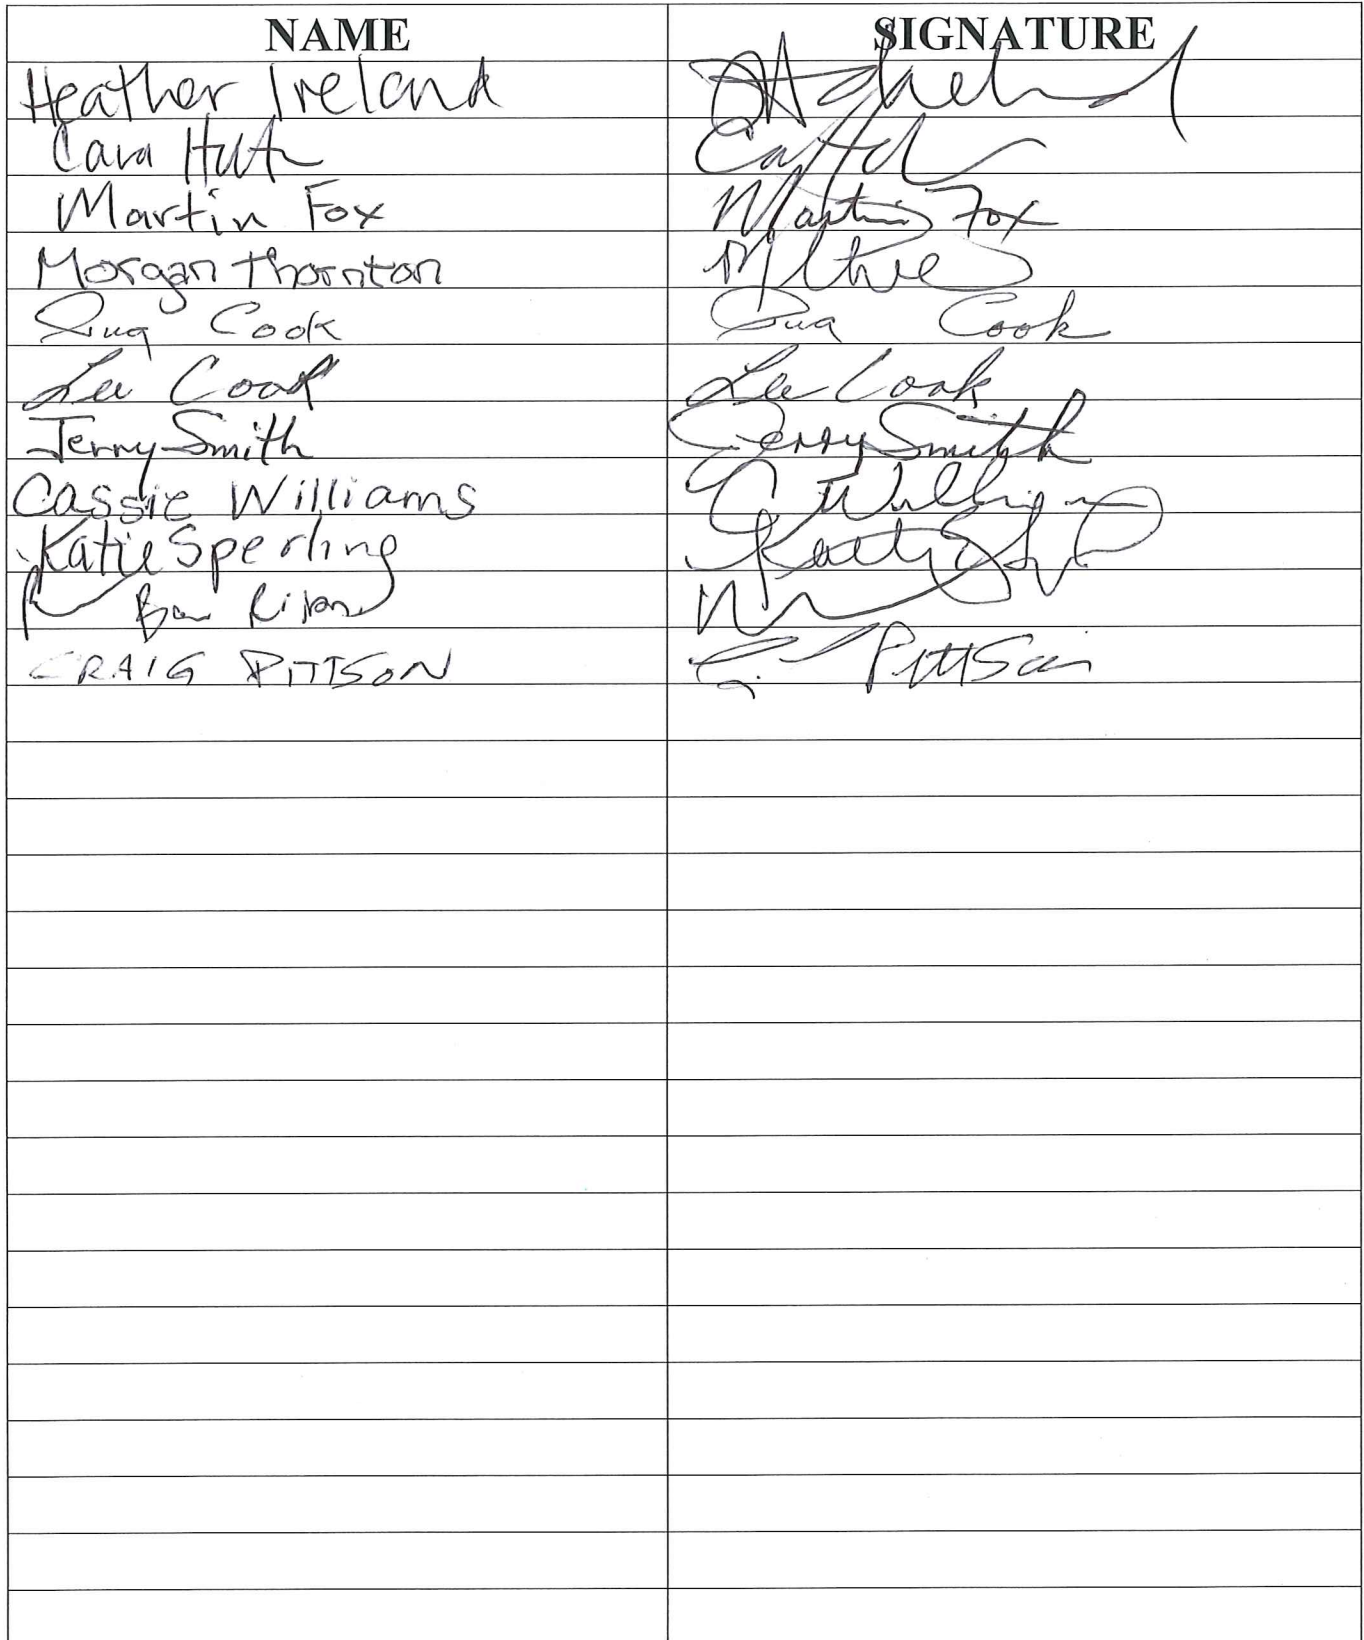 NAME SIGNATURE
Heather Ireland
Cara
Martin Fox Martin Fox
Morgan Thornton
Cook Cook
Lee Cook Lee Cook
Jerry Smith Jerry Smith
Cassie Williams C Williams
Katie Sperling Katie
CRAIG PITTSON C. Pittson